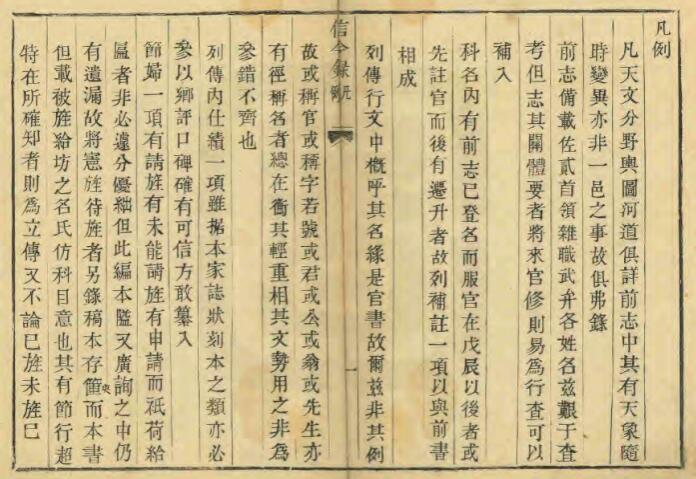 凡例
凡天文分野輿圖河道俱詳前志中其有天象隨
時變異亦非一邑之事故俱弗錄
前志備載佐貳首領雜職武弁各姓名茲艱于查
考但志其關體要者將來官修則易為行查可以
補入
科名內有前志已登名而服官在戊辰以後者或
先註官而後有遷升者故列補註一項以與前書
相成
列傳行文中概呼其名緣是官書故爾茲非其例
信今錄 凡例 一
故或稱官或稱字若號或君或公或翁或先生亦
有徑稱名者總在衝其輕重相其文勢用之非為
參錯不齊也
列傳內仕績一項雖据本家誌狀刻本之類亦必
參以鄉評口碑確有可信方敢纂入
節婦一項有請旌有未能請旌有申請而祇荷給
匾者非必遽分優絀但此編本隘又廣詢之中仍
有遺漏故將憲旌待旌者另錄稿本存篋而本書
但載被旌給坊之名氏仿科目意也其有節行超
特在所確知者則為立傳又不論已旌未旌已